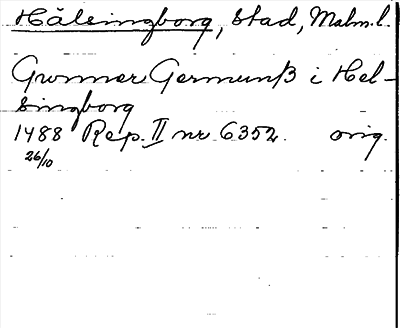 Hälsingborg, Stad, Malm.l.
Gunner Germunß i Hel-
singborg
1488 Rep. II nr 6352. orig.
26/10